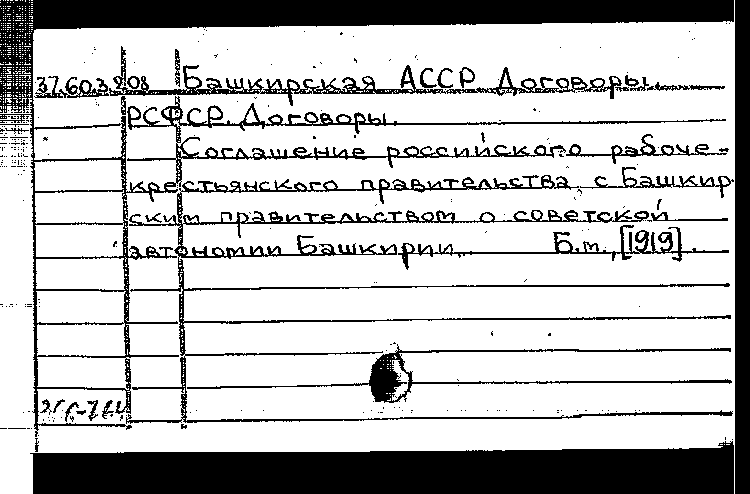 37.60.3.208 Башкирская АССР Договоры.
РСФСР. Договоры.
Соглашение российского рабоче-
крестьянского правительства с Башкир
ским правительством о советской
автономии Башкирии. Б.м., [1919].